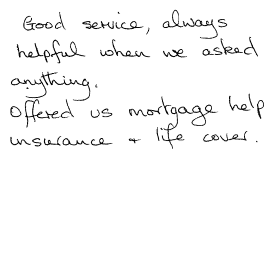 Good service, always
helpful when we asked
anything.
Offered us mortgage help
insurance + life cover.